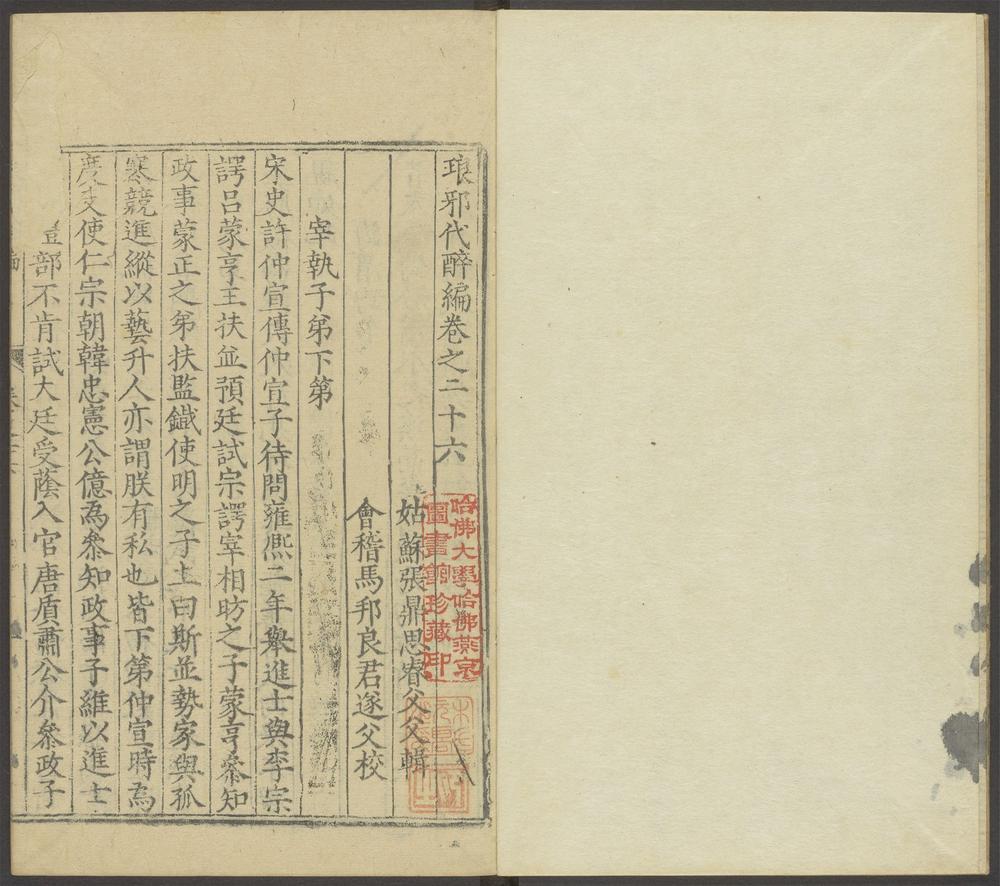 琅邪代醉編卷之二十六
姑蘇張鼎思睿父父輯
會稽馬邦良君遂父校
宰執子弟下第
宋史許仲宣傳仲宣子待問雍熈二年舉進士與李宗
諤呂蒙亨王扶並預廷試宗諤宰相昉之子蒙亨叅知
政事蒙正之弟扶監鐵使明之子上曰斯並勢家與孤
寒競進縱以藝升人亦謂朕有私也皆下第仲宣時為
度支使仁宗朝韓忠憲公億為叅知政事子維以進士
部不肯試大廷受蔭入官唐質肅公介叅政子
哈佛大學哈佛燕京
圖書館珍藏印